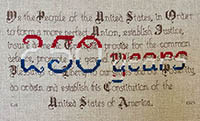 We the People of the United States, in Order
to form a more perfect Union, establish Justice,
insure provide for the common
250 years
do ordain and establish this Constitution of the
United States of America.